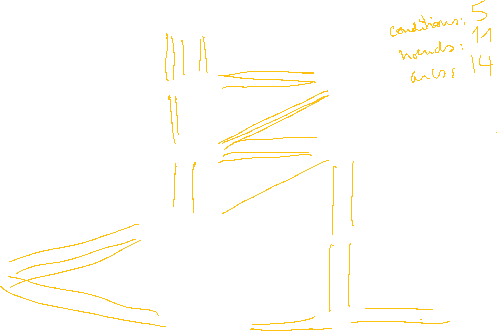 conditions: 5
nœuds: 11
arcs: 14